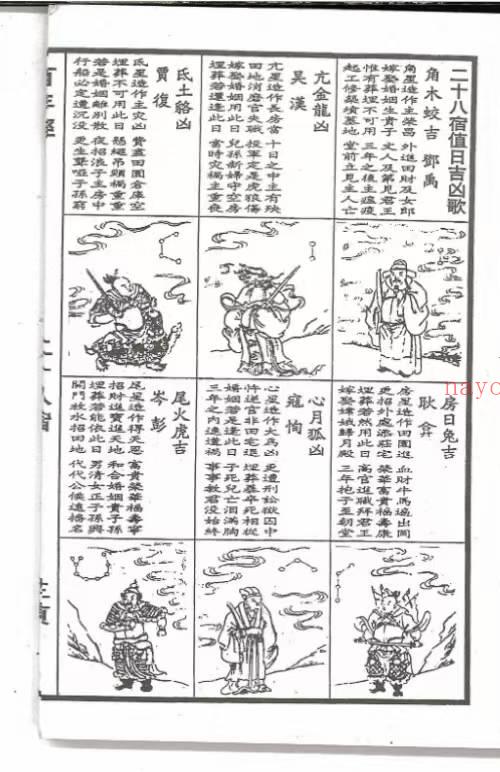 二十八宿值日吉凶歌
角木蛟吉 鄧禹
角星造作主榮昌 外進田財及女郎
嫁娶婚姻生貴子 文人及第見君王
惟有葬埋不可用 三年之後主瘟疫
起工修築墳墓地 堂前立見主人亡
亢金龍凶
吳漢
亢星造作長房當 十日之中主有殃
田地消磨官失職 投軍定是虎狼傷
嫁娶婚姻用此日 兒孫新婦守空房
埋葬若還逢此日 當時灾禍主重喪
氐土貉凶
賈復
氐星造作主灾凶 費盡田園倉庫空
埋葬不可用此日 懸繩吊頸禍重重
若是婚姻離別散 夜招浪子主房中
行船必定遭沉没 更生聾啞子孫窮
房日兔吉
耿弇
房星造作田園進 血財牛馬遍山岡
更招外處添莊宅 榮華富貴福壽康
埋葬若然用此日 高官進職拜君王
嫁娶嫦娥歸月殿 三年抱子至朝堂
心月狐凶
寇恂
心星造作大為凶 更遭刑訟獄囚中
忤逆官非田宅退 埋葬暴卒死相從
婚姻若是逢此日 子死兒亡淚滿胸
三年之內連遭禍 事事教君没始終
尾火虎吉
岑彭
尾星造作得天恩 富貴榮華福壽寧
招財進寶進天地 和合婚姻貴子孫
埋葬若能依此日 男清女正子孫興
開門放水招田地 代代公候遠播名
nayc